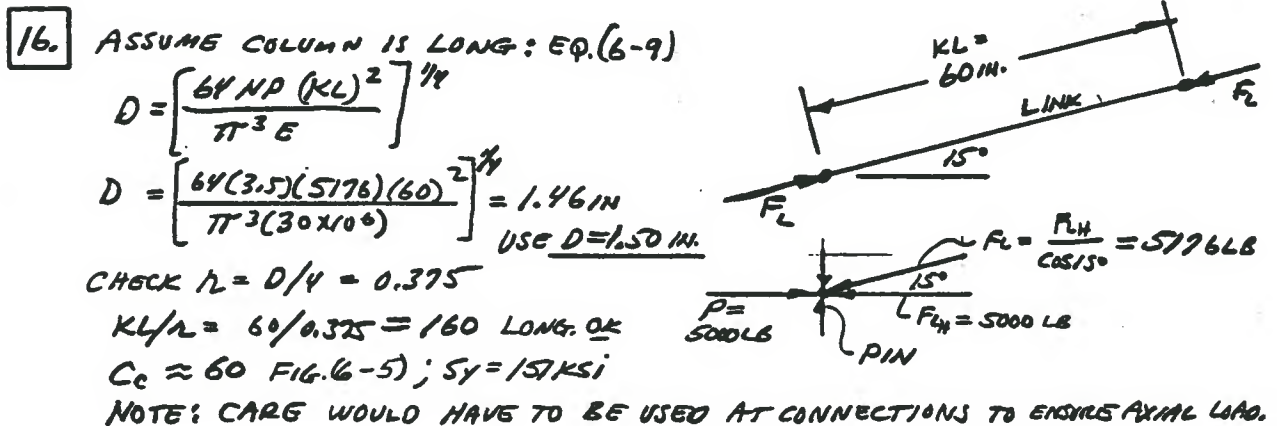 16. ASSUME COLUMN IS LONG: EQ.(6-9)
D = [64 NP (KL)² / π³ E]^1/4
D = [64(3.5)(5176)(60)² / π³(30×10⁶)]^1/4 = 1.46 IN
USE D=1.50 IN.
CHECK r = D/4 = 0.375
KL/r = 60/0.375 = 160 LONG. OK
Cc ≈ 60 FIG.(6-5); Sy = 151 KSi
NOTE: CARE WOULD HAVE TO BE USED AT CONNECTIONS TO ENSURE AXIAL LOAD.
KL =
60 IN.
LINK
FL
15°
FL
FL = RH / COS15° = 5176 LB
15°
P =
5000 LB
FLH = 5000 LB
PIN